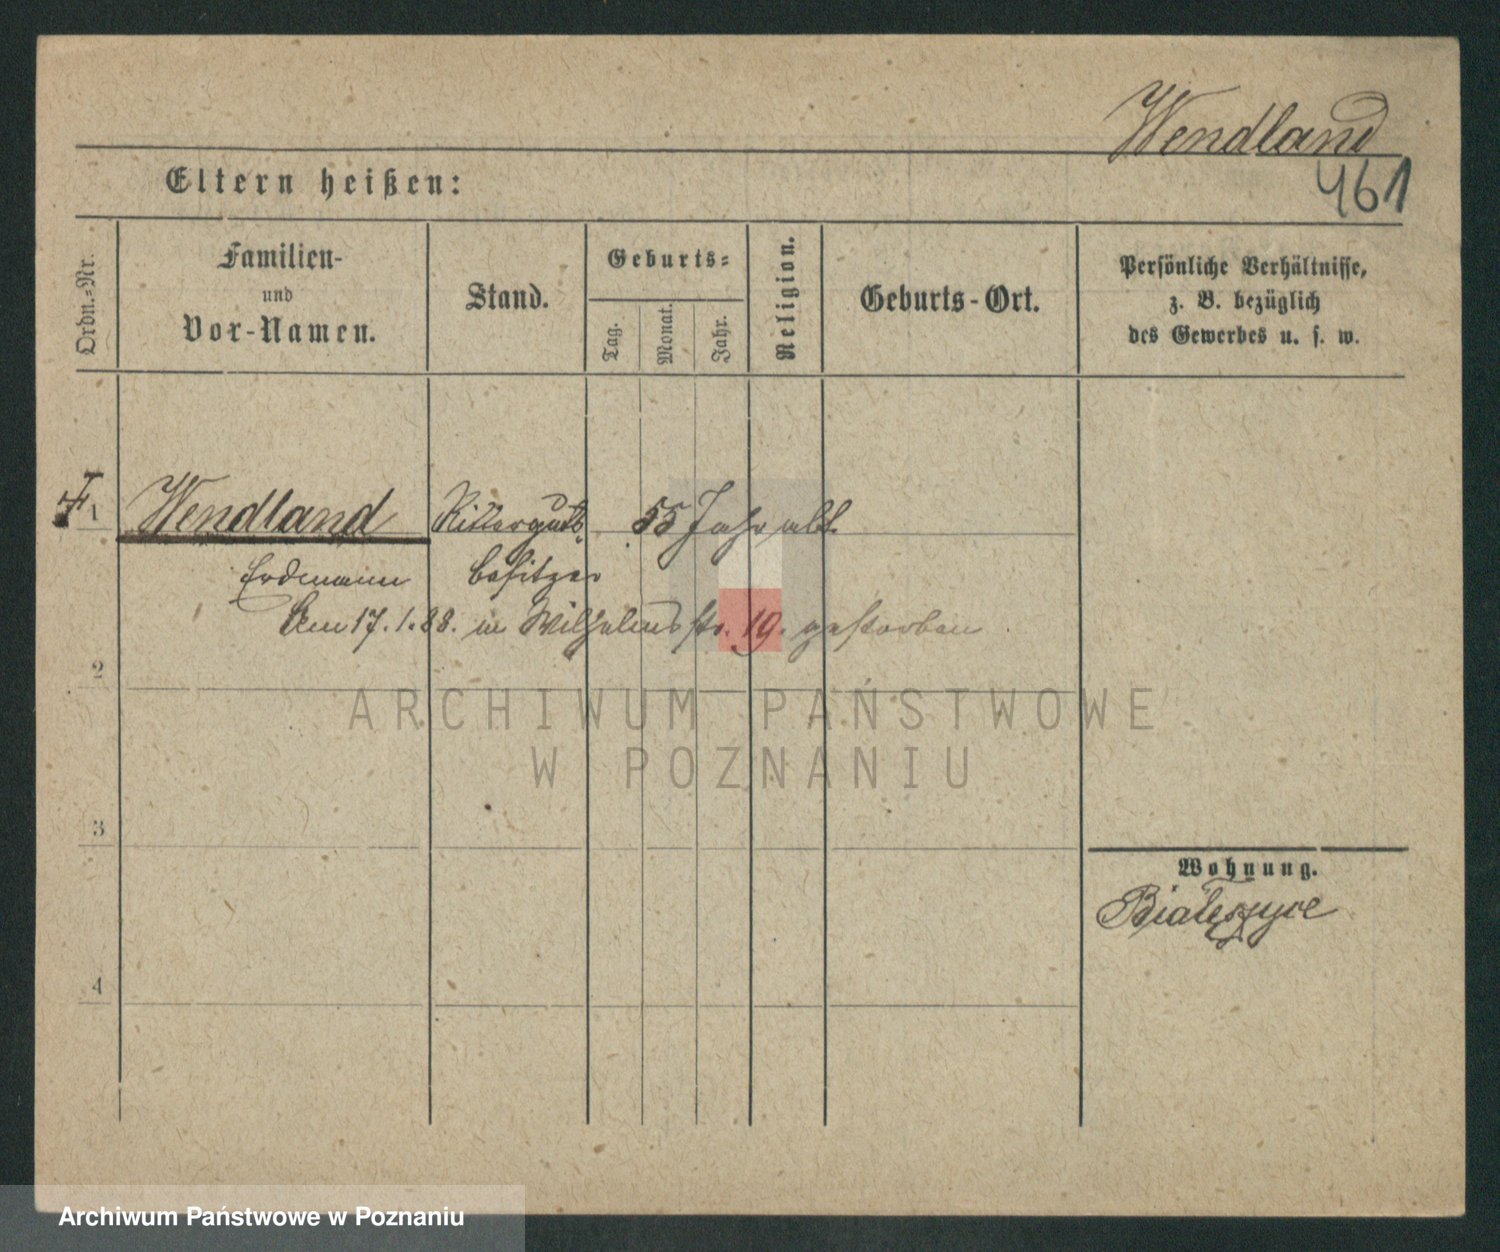 Wendland
461
Eltern heißen:
Ordn.-Nr.
Familien-
und
Vor-Namen.
Stand.
Geburts-
Tag.
Monat.
Jahr.
Religion.
Geburts-Ort.
Persönliche Verhältnisse,
z. B. bezüglich
des Gewerbes u. s. w.
1 Wendland Ritterguts 55 Jahr alt.
Erdmann besitzer
Am 17.1.88. in Wilhelmstr. 19. gestorben
2
ARCHIWUM PAŃSTWOWE
W POZNANIU
3
Wohnung.
4
Archiwum Państwowe w Poznaniu